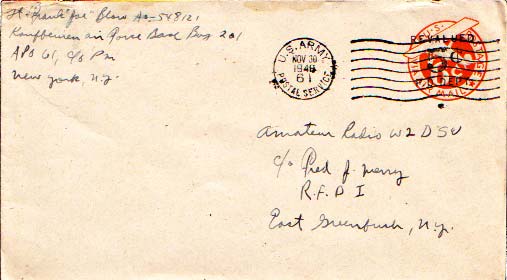 Lt. "Frank" Joe" Blow Ao-548121
Kaufbeuren air Force Base Box 201
APO 61, c/o Pm
New York, N.Y.
U.S. ARMY
NOV 30
1948
61
POSTAL SERVICE
U.S. POSTAGE
REVALUED
5¢
P.O. DEPT.
VIA AIR MAIL
Amateur Radio W2DSU
c/o Fred J. Merry
R.F.D I
East Greenbush, N.Y.